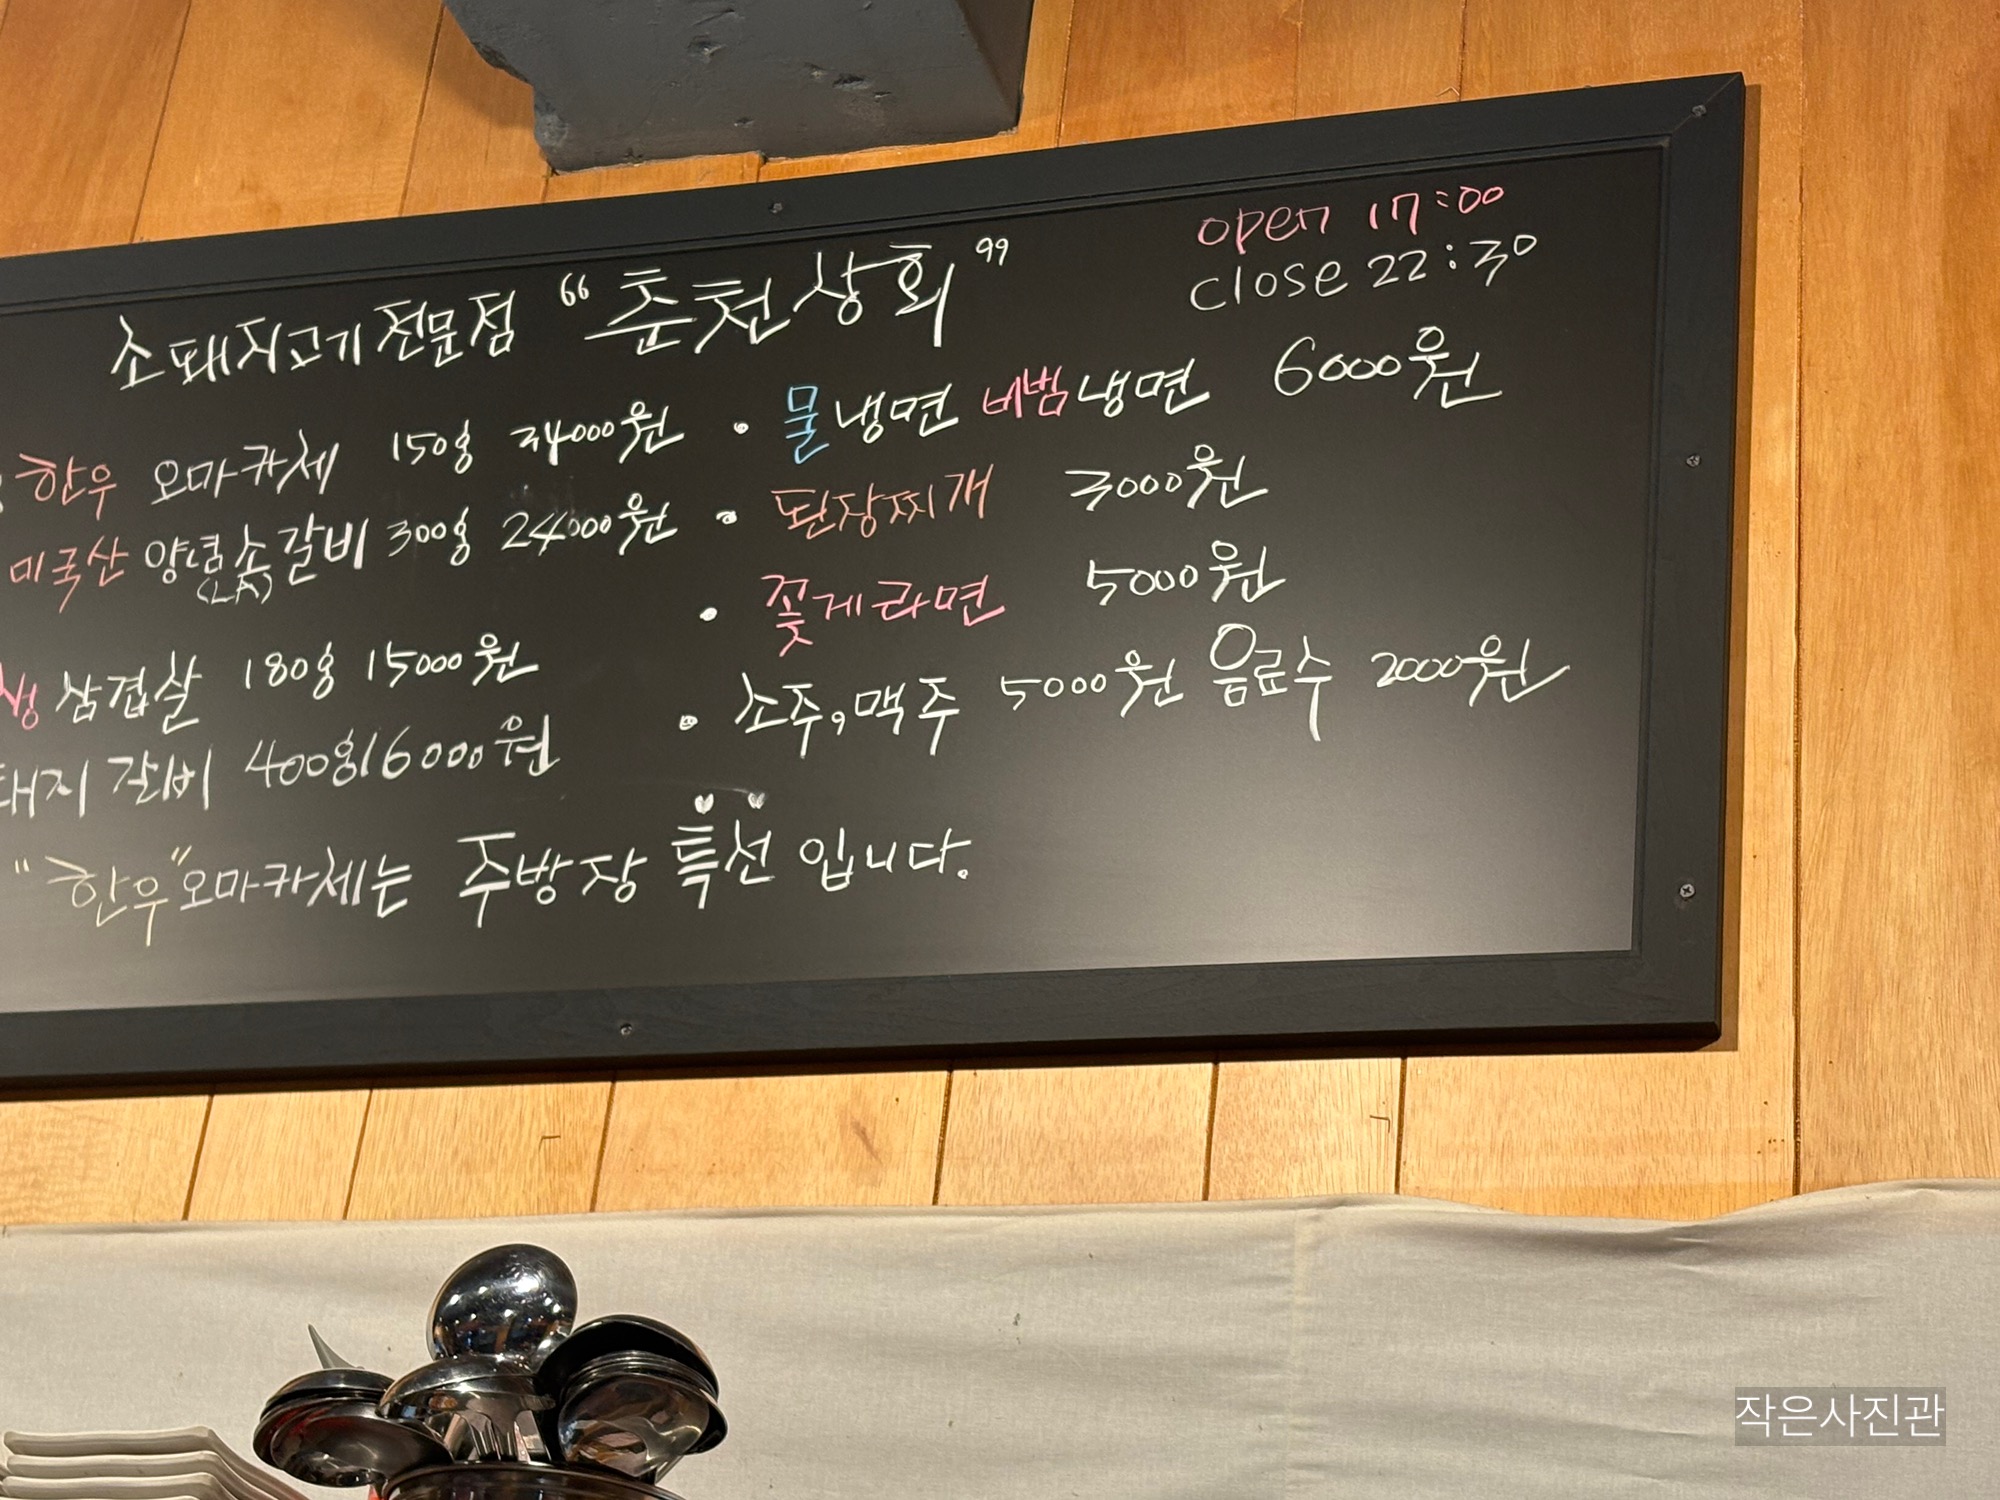 소돼지고기전문점 "춘천상회"
open 17:00
close 22:30
한우 오마카세 150g 34000원
미국산 양념소갈비 300g 24000원
(LA)
생삼겹살 180g 15000원
돼지갈비 400g 16000원
• 물냉면 비빔냉면 6000원
• 된장찌개 3000원
• 꽃게라면 5000원
• 소주, 맥주 5000원 음료수 2000원
"한우"오마카세는 주방장 특선입니다.
작은사진관